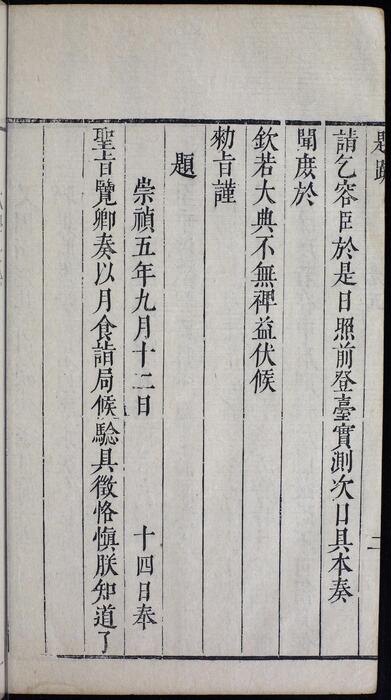 請乞容臣於是日照前登臺實測次日具本奏
聞庶於
欽若大典不無裨益伏候
勑旨謹
題
崇禎五年九月十二日 十四日奉
聖旨覽卿奏以月食詣局候驗具徵恪慎朕知道了